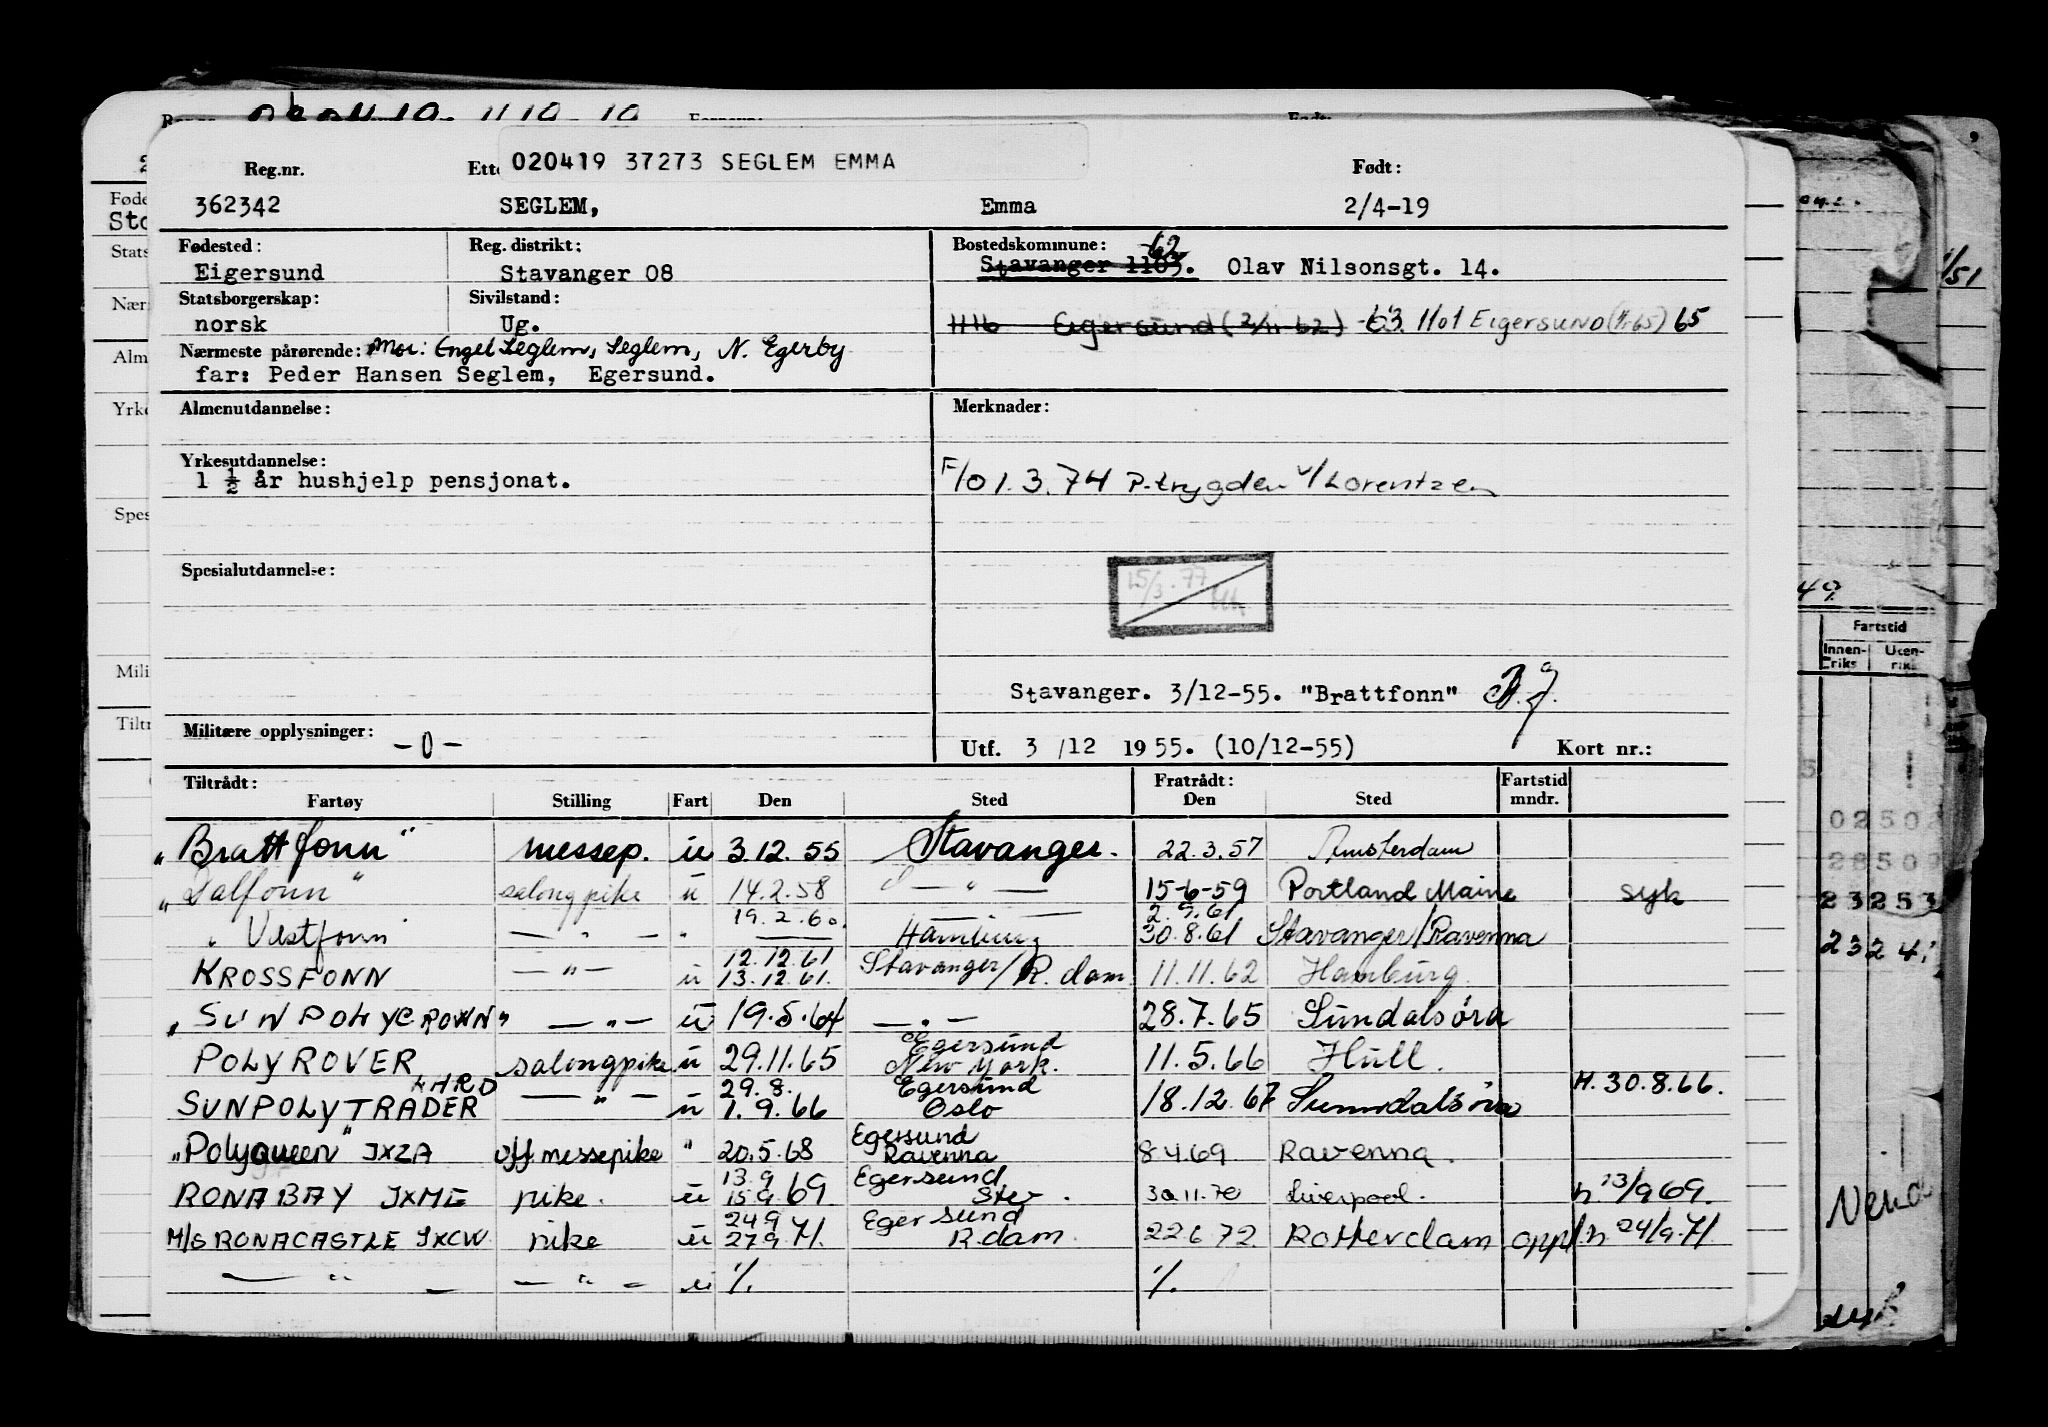 020419 37273 SEGLEM EMMA
Reg.nr. Født:
362342 SEGLEM, Emma 2/4-19
Fødested: Reg. distrikt: Bostedskommune: 62
Eigersund Stavanger 08 Stavanger 1103. Olav Nilsonsgt. 14.
Statsborgerskap: Sivilstand:
norsk Ug. 1116 Eigersund (2/11-62) 63. 1101 EIGERSUND 65
Nærmeste pårørende: Mor: Engel Seglem, Seglem, N. Egerby
far: Peder Hansen Seglem, Egersund.
Almenutdannelse: Merknader:
Yrkesutdannelse:
1 ½ år hushjelp pensjonat. F/O 1.3.74 P.trygden v/Lorentzen
Spesialutdannelse: 15/3.77
Stavanger. 3/12-55. "Brattfonn"
Militære opplysninger: -0- Utf. 3/12 1955. (10/12-55) Kort nr.:
Tiltrådt: Fratrådt: Fartstid
Fartøy Stilling Fart Den Sted Den Sted mndr.
"Brattfonn" messep. u 3.12.55 Stavanger. 22.3.57 Amsterdam
"Dalfonn" salongpike u 14.2.58 — " — 15-6-59 Portland Maine syk
19.2.60. 2.9.61
" Vestfonn — " — " Hamburg 30.8.61 Stavanger/Ravenna
12.12.61
KROSSFONN — " — u 13.12.61. Stavanger/R.dam 11.11.62 Hamburg
"SUNPOLYCROWN" — " — u 19.5.64 — " — 28.7.65 Sundalsöra
Egersund
POLYROVER salongpike u 29.11.65 New York. 11.5.66 Hull.
LHRD 29.8. Egersund H. 30.8.66.
SUNPOLYTRADER — " — u 1.9.66 Oslo 18.12.67 Sunndalsöra
Egersund
"Polyqueen" JXZA off messepike " 20.5.68 Ravenna 8 4.69 Ravenna.
13.9 Egersund
RONABAY JXME pike. u 15.9.69 30.11.70 Liverpool. h 13/9 69.
24 9 Egersund
M/S RONACASTLE JXCW pike u 27 9 71. R.dam. 22 6 72 Rotterdam oppl. h 24/9-71.
— " — — " — u %. %.
Fartstid
Innen-riks Uten-riks